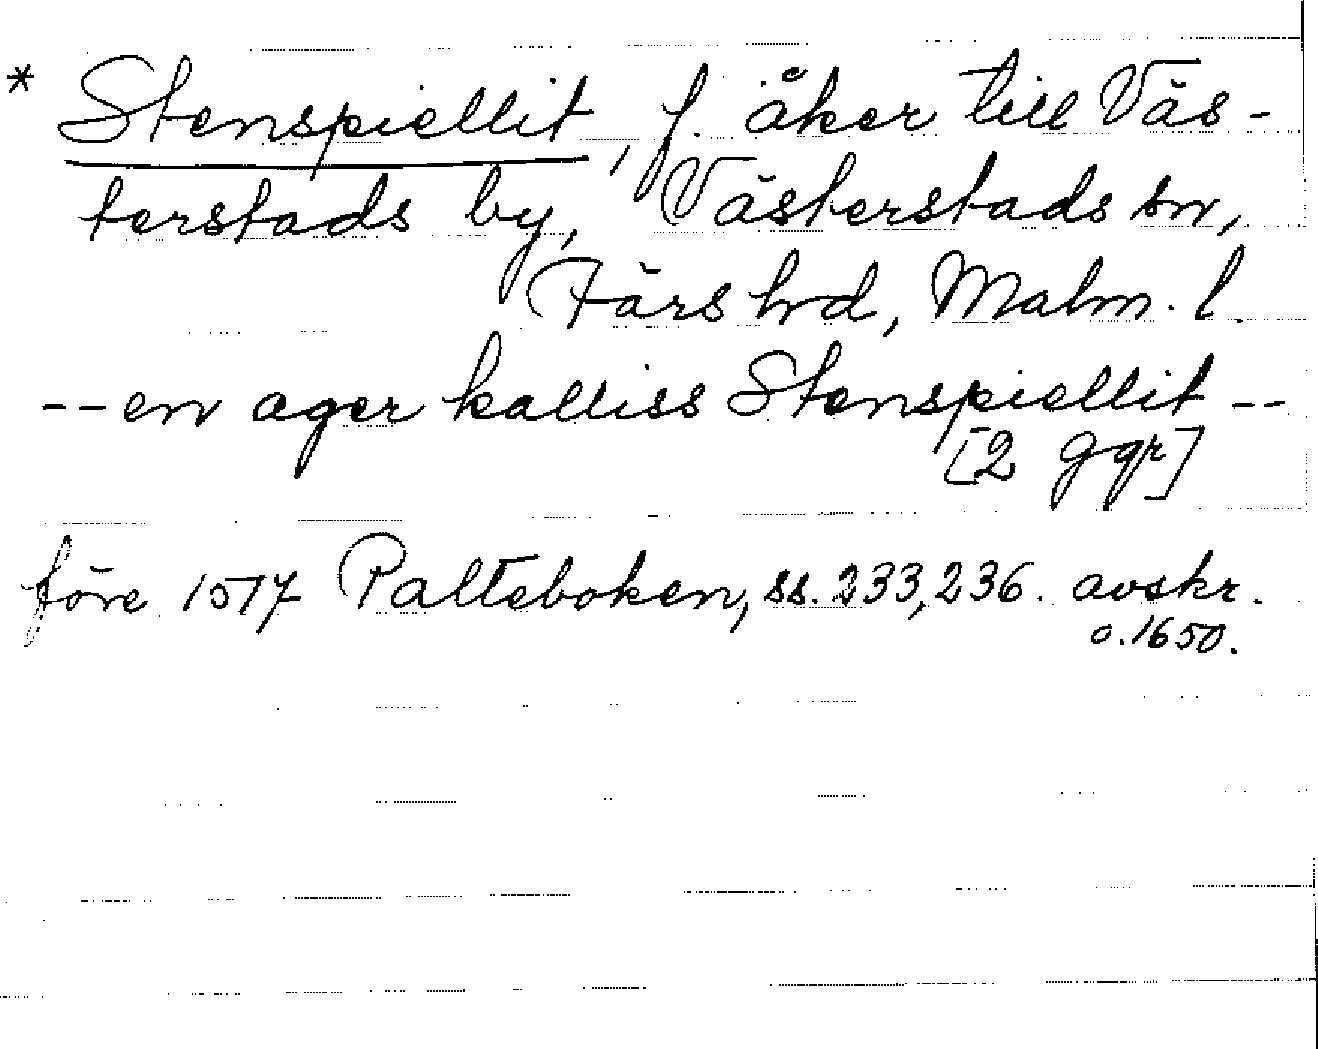 * Stenspiellit, f. åker till Väs-
terstads by, Västerstads sn,
Färs hrd, Malm. l.
-- en ager kalliss Stenspiellit --
[2 ggr]
före 1517 Palteboken, ss. 233, 236. avskr.
o. 1650.